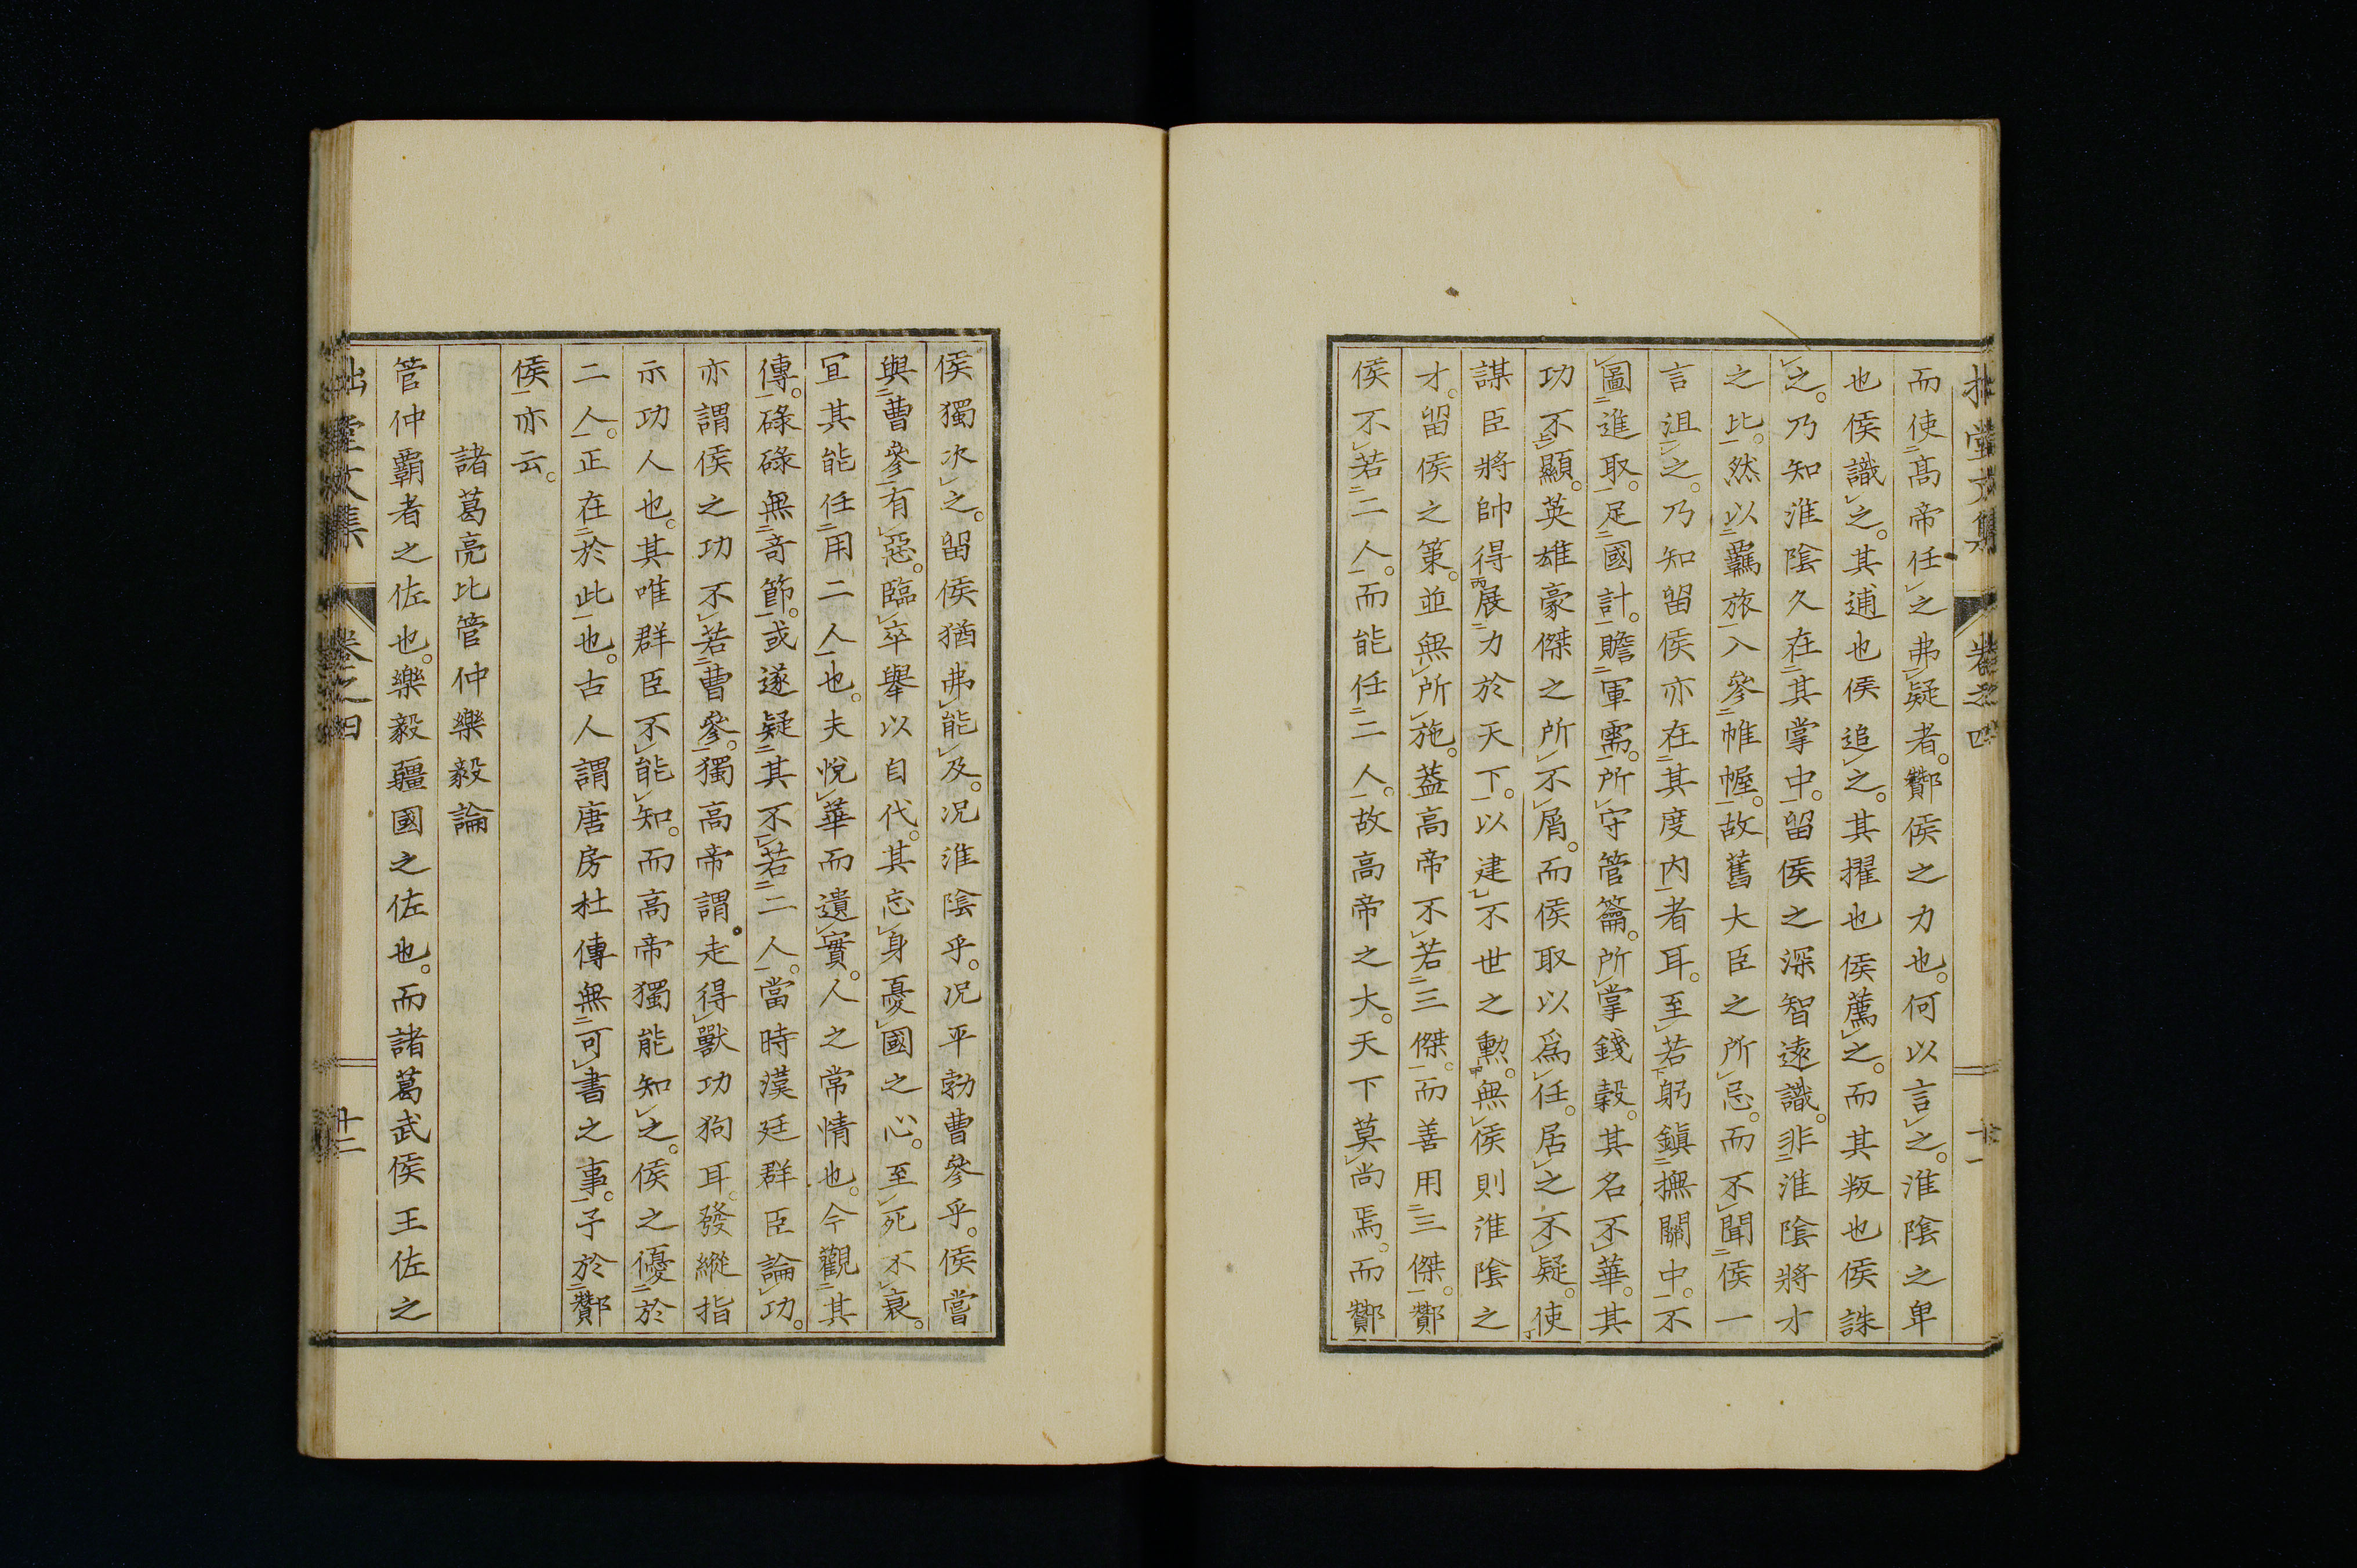 拙堂文集 卷之四 十一
而使高帝任之弗疑者。酇侯之力也。何以言之。淮陰之卑
也侯識之。其逋也侯追之。其擢也侯薦之。而其叛也侯誅
之。乃知淮陰久在其掌中。留侯之深智遠識。非淮陰將才
之比。然以羈旅入參帷幄。故舊大臣之所忌。而不聞侯一
言沮之。乃知留侯亦在其度內者耳。至若躬鎭撫關中。不
圖進取。足國計。贍軍需。所守管籥。所掌錢穀。其名不華。其
功不顯。英雄豪傑之所不屑。而侯取以爲任。居之不疑。使
謀臣將帥得展力於天下。以建不世之勳。無侯則淮陰之
才。留侯之策。並無所施。葢高帝不若三傑。而善用三傑。酇
侯不若二人。而能任二人。故高帝之大。天下莫尚焉。而酇
侯獨次之。留侯猶弗能及。况淮陰乎。况平勃曹參乎。侯嘗
與曹參有惡。臨卒舉以自代。其忘身憂國之心。至死不衰。
宜其能任用二人也。夫悅華而遺實。人之常情也。今觀其
傳。碌碌無奇節。或遂疑其不若二人。當時漢廷群臣論功。
亦謂侯之功不若曹參。獨高帝謂。走得獸功狗耳。發縱指
示功人也。其唯群臣不能知。而高帝獨能知之。侯之優於
二人。正在於此也。古人謂唐房杜傳無可書之事。予於酇
侯亦云。
諸葛亮比管仲樂毅論
管仲霸者之佐也。樂毅疆國之佐也。而諸葛武侯王佐之
拙堂文集 卷之四 十二